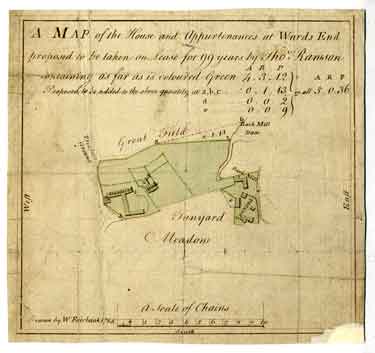 A MAP of the House and Appurtenances at Wards End
proposed to be taken on Lease for 99 years by Thos. Rawson
A R P
containing as far as is coloured Green 4.3.12
A R P
Proposed to be added to the above quantity at a,b,c .0.1.13
in all 5.0.36
a 0 0 2
0 0 9
Back Mill
Dam
Great Field
West
East
Tanyard
Meadow
A Scale of Chains
Drawn by W. Fairbank 1765
South